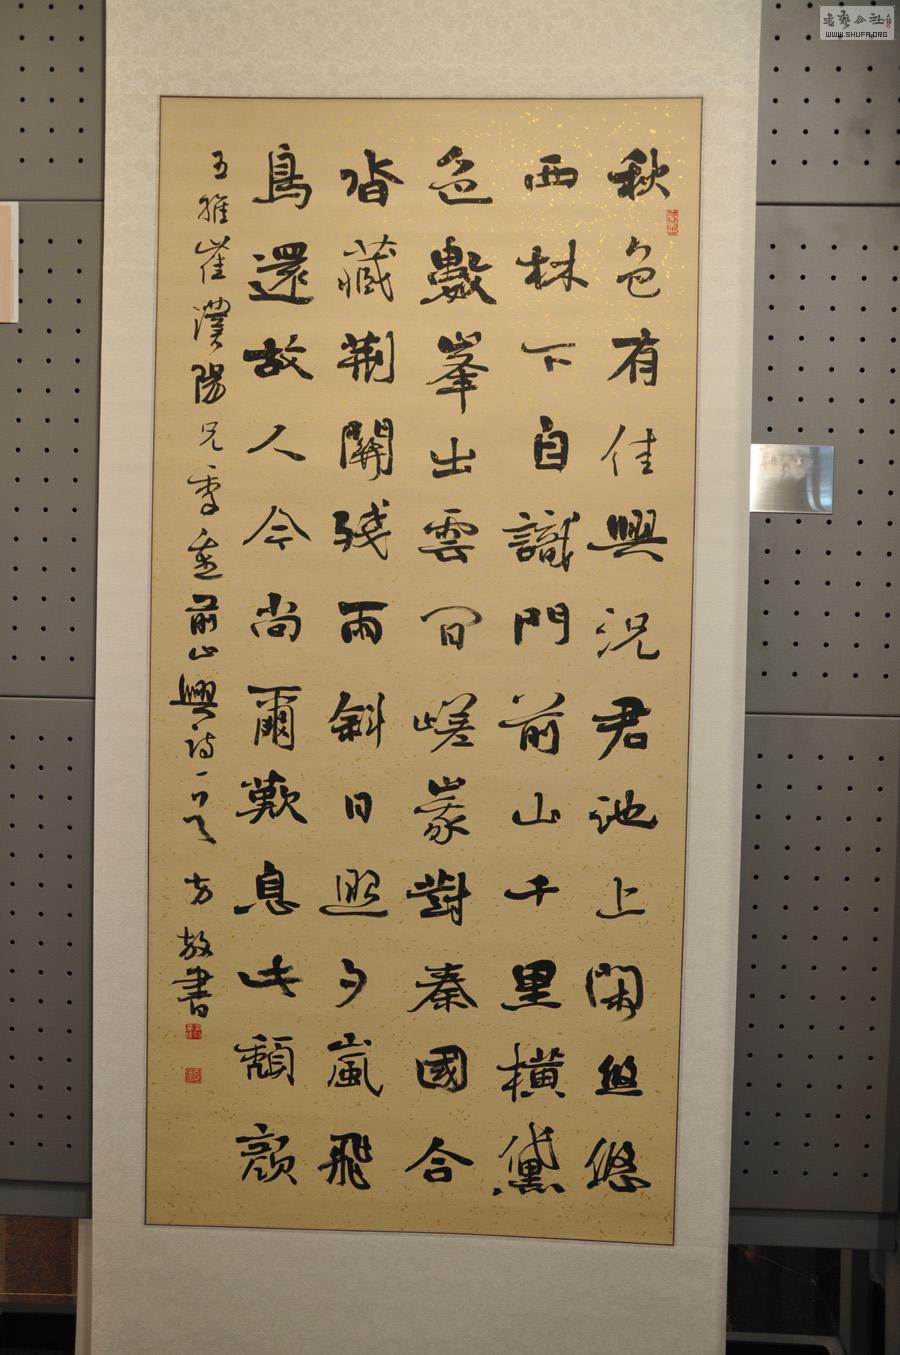 秋色有佳興況君池上閑悠悠
西林下自識門前山千里橫黛
色數峯出雲間嵯峩對秦國合
沓藏荊關殘雨斜日照夕嵐飛
鳥還故人今尚爾歎息此頹顏
王維崔濮陽兄季重前山興詩一首 方 書
書藝公社
WWW.SHUFA.ORG